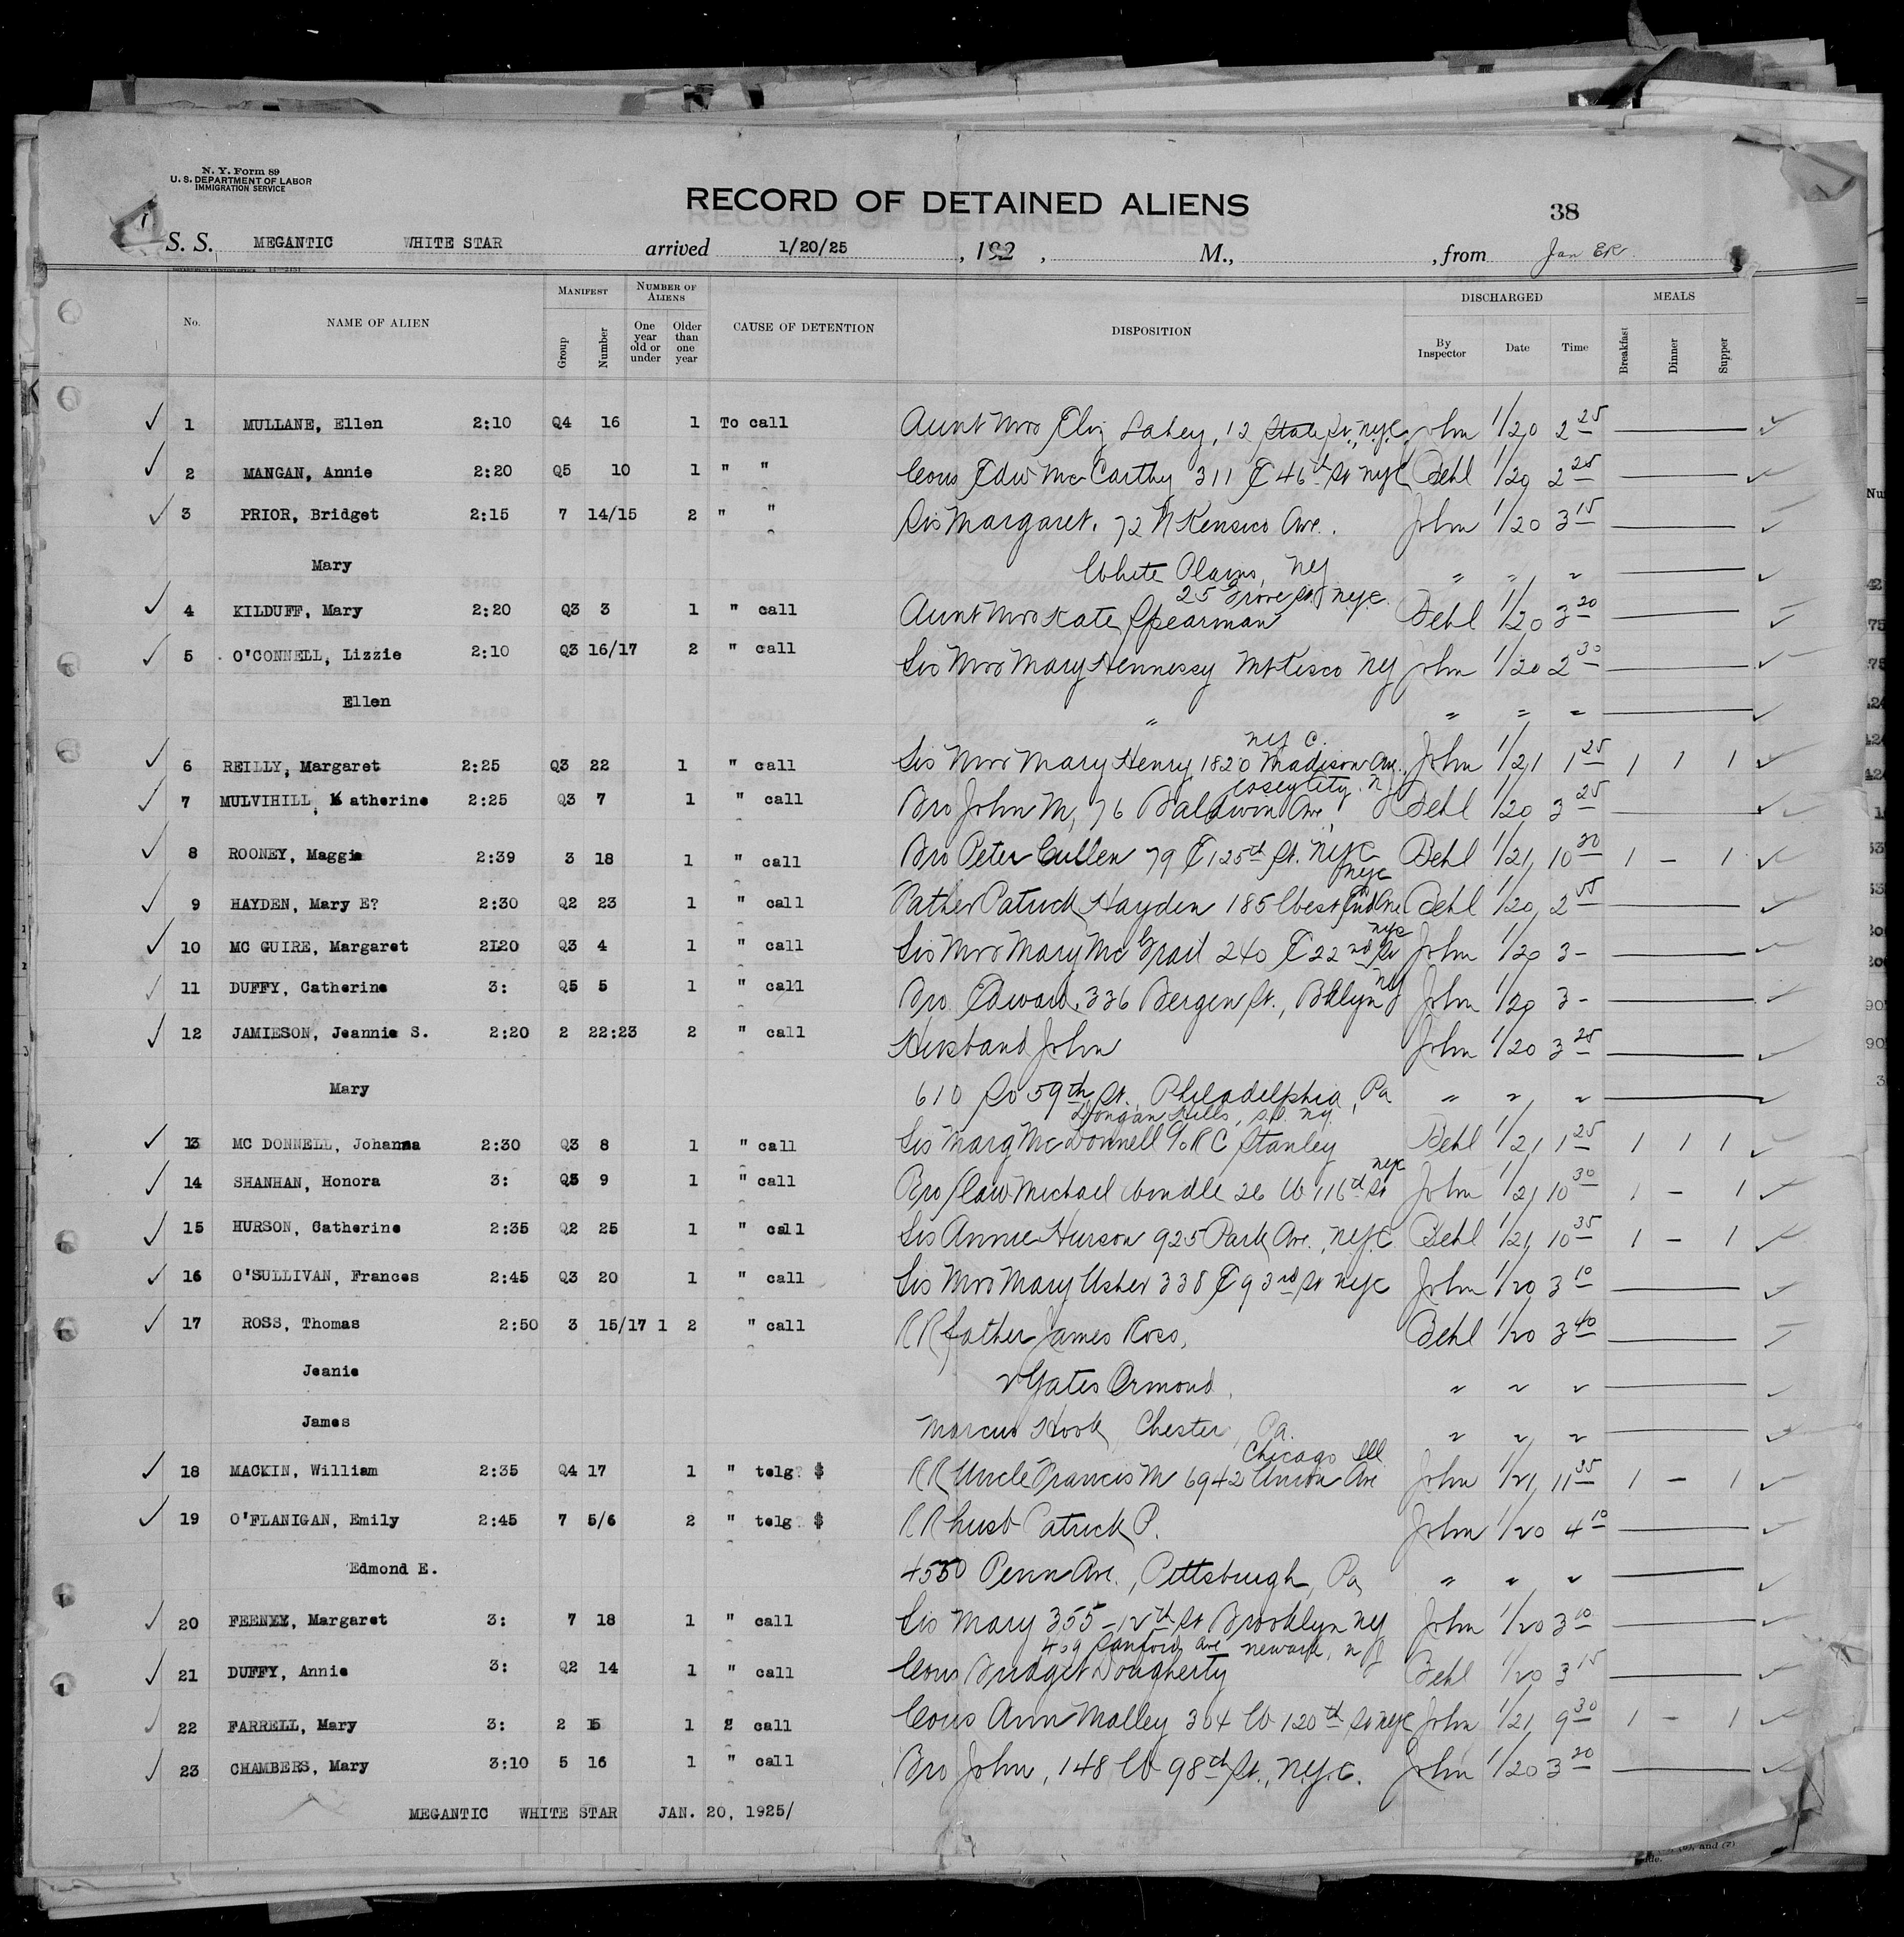 N. Y. Form 89
U. S. DEPARTMENT OF LABOR
IMMIGRATION SERVICE
RECORD OF DETAINED ALIENS
38
S. S. MEGANTIC WHITE STAR arrived 1/20/25, 192 , M., , from Jan
No. NAME OF ALIEN MANIFEST Group Number NUMBER OF ALIENS One year old or under Older than one year CAUSE OF DETENTION DISPOSITION DISCHARGED By Inspector Date Time MEALS Breakfast Dinner Supper
1 MULLANE, Ellen 2:10 Q4 16 1 To call Aunt Mrs Eliz Lahey, 12 State St, nyc John 1/20 2 25
2 MANGAN, Annie 2:20 Q5 10 1 " " Cous Edw McCarthy 311 E 46th St nyc Behl 1/20 2 25
3 PRIOR, Bridget 2:15 7 14/15 2 " " Sis Margaret. 72 N Kensico Ave. John 1/20 3 15
Mary White Plains, ny " " "
25 Grove St nyc
4 KILDUFF, Mary 2:20 Q3 3 1 " call Aunt Mrs Kate Spearman Behl 1/20 3 20
5 O'CONNELL, Lizzie 2:10 Q3 16/17 2 " call Sis Mrs Mary Hennessy Mt Kisco NY John 1/20 2 30
Ellen " " " "
ny C.
6 REILLY, Margaret 2:25 Q3 22 1 " call Sis Mrs Mary Henry 1820 Madison Ave. John 1/21 1 25 1 1 1
7 MULVIHILL, Katherine 2:25 Q3 7 1 " call Bro John M, 76 Baldwin Ave, Behl 1/20 3 25
8 ROONEY, Maggie 2:39 3 18 1 " call Bro Peter Cullen 79 E 125th St. NYC Behl 1/21 10 30 1 - 1
nyc
9 HAYDEN, Mary E? 2:30 Q2 23 1 " call Father Patrick Hayden 185 West End Ave Behl 1/20 2 55
nyc
10 MC GUIRE, Margaret 2L20 Q3 4 1 " call Sis Mrs Mary McGrail 240 E 22nd St John 1/20 3-
11 DUFFY, Catherine 3: Q5 5 1 " call Bro Edward. 336 Bergen St., Bklyn ny John 1/20 3-
12 JAMIESON, Jeannie S. 2:20 2 22:23 2 " call Husband John John 1/20 3 25
Mary 610 So 59th St., Philadelphia, Pa " " "
Dongan Hills, S.I. ny
13 MC DONNELL, Johanna 2:30 Q3 8 1 " call Sis Marg McDonnell c/o R C Stanley Behl 1/21 1 25 1 1 1
nyc
14 SHANHAN, Honora 3: Q3 9 1 " call Bro/law Michael Windle 26 W 116th St John 1/21 10 30 1 - 1
15 HURSON, Catherine 2:35 Q2 25 1 " call Sis Annie Hurson 925 Park Ave., NYC Behl 1/21 10 35 1 - 1
16 O'SULLIVAN, Frances 2:45 Q3 20 1 " call Sis Mrs Mary Usher 338 E 93rd St nyc John 1/20 3 10
17 ROSS, Thomas 2:50 3 15/17 1 2 " call RR father James Ross, Behl 1/20 3 40
Jeanie Yates Ormond, " " "
James Marcus Hook, Chester, Pa. " " "
Chicago Ill
18 MACKIN, William 2:35 Q4 17 1 " telg? $ RR Uncle Francis M 6942 Union Ave John 1/21 11 35 1 - 1
19 O'FLANIGAN, Emily 2:45 7 5/6 2 " telg $ RR husb Patrick P. John 1/20 4 10
Edmond E. 4550 Penn Ave., Pittsburgh, Pa " " "
20 FEENEY, Margaret 3: 7 18 1 " call Sis Mary 355-12th St Brooklyn ny John 1/20 3 10
409 Sanford Ave Newark, n J
21 DUFFY, Annie 3: Q2 14 1 " call Cous Bridget Dougherty Behl 1/20 3 15
22 FARRELL, Mary 3: 2 15 1 " call Cous Ann Malley 304 W 120th St nyc John 1/21 9 30 1 - 1
23 CHAMBERS, Mary 3:10 5 16 1 " call Bro John, 148 W 98th St., N.Y.C. John 1/20 3 20
MEGANTIC WHITE STAR JAN. 20, 1925/